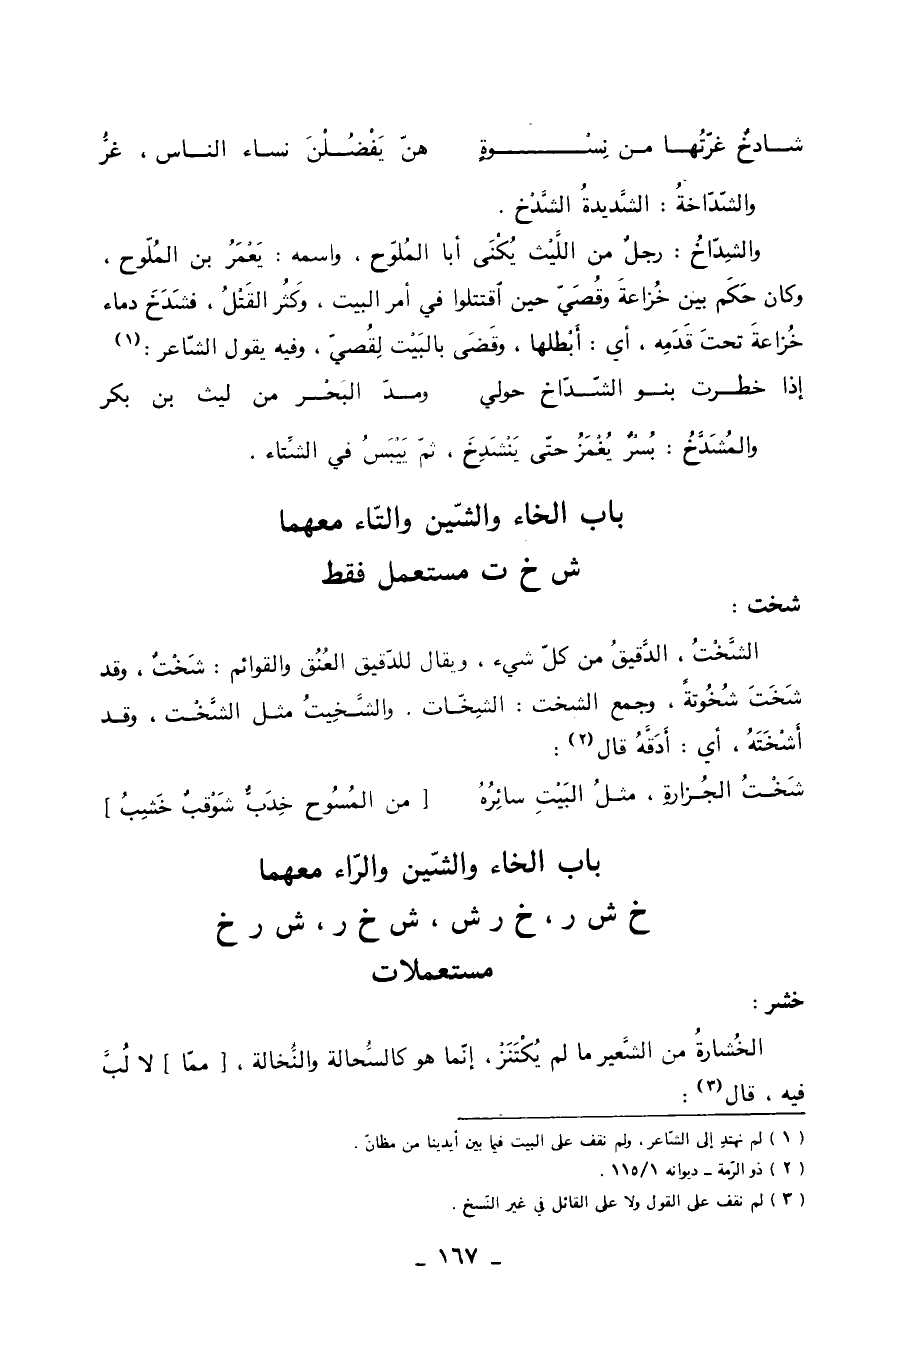 شـادخٌ غرّتُهـا مـن نِسْـوةٍ    هنّ يَفْضُـلْنَ نسـاء النـاس ، غرُّ
والشّدّاخةُ : الشَّديدةُ الشَّدْخ .
والشدّاخُ : رجلٌ من اللَّيْث يُكْنَى أبا المُلوّح ، واسمه : يَعْمَرُ بن المُلّوح ،
وكان حَكَم بين خُزاعةَ وقُصَيّ حين ٱقتتلوا في أمر البيت ، وكَثُر القَتْلُ ، فشَدَخَ دماء
خُزاعةَ تحتَ قَدَمِه ، أي : أَبْطلها ، وقَضَى بالبَيْت لِقُصيّ ، وفيه يقول الشّاعر :(١)
إذا خطـرت بنـو الشّـدّاخ حولي    ومـدّ البَحْـر من ليث بن بكر
والمُشَدَّخُ : بُسْرٌ يُغْمَزُ حتّى يَنْشَدِخَ ، ثمّ يَيْبَسُ في الشِّتاء .
باب الخاء والشّين والتّاء معهما
ش خ ت مستعمل فقط
شخت :
الشَّخْتُ ، الدَّقيقُ من كلّ شيء ، ويقال للدّقيق العُنُق والقوائم : شَخْتٌ ، وقد
شَخَتَ شُخُوتةً ، وجمع الشخت : الشِخّـات . والشَّـخِيتُ مثـل الشَّخْـت ، وقـد
أَشْخَتَهُ ، أي : أَدَقَّهُ قال(٢) :
شَخْـتُ الجُـزارةِ ، مثـلُ البَيْتِ سائِرُهُ    [ من المُسُوح خِدَبٌّ شَوْقَبٌ خَشِبُ ]
باب الخاء والشّين والرّاء معهما
خ ش ر ، خ ر ش ، ش خ ر ، ش ر خ
مستعملات
خشر :
الخُشارةُ من الشَّعير ما لم يُكْتَنَزْ ، إنّما هو كالسُّحالة والنُّخالة ، [ ممّا ] لا لُبَّ
فيه ، قال(٣) :
( ١ ) لم نهتدِ إلى الشّاعر ، ولم نقف على البيت فيما بين أيدينا من مظانّ .
( ٢ ) ذو الرّمة ـ ديوانه ١١٥/١ .
( ٣ ) لم نقف على القول ولا على القائل في غير النّسخ .
ـ ١٦٧ ـ